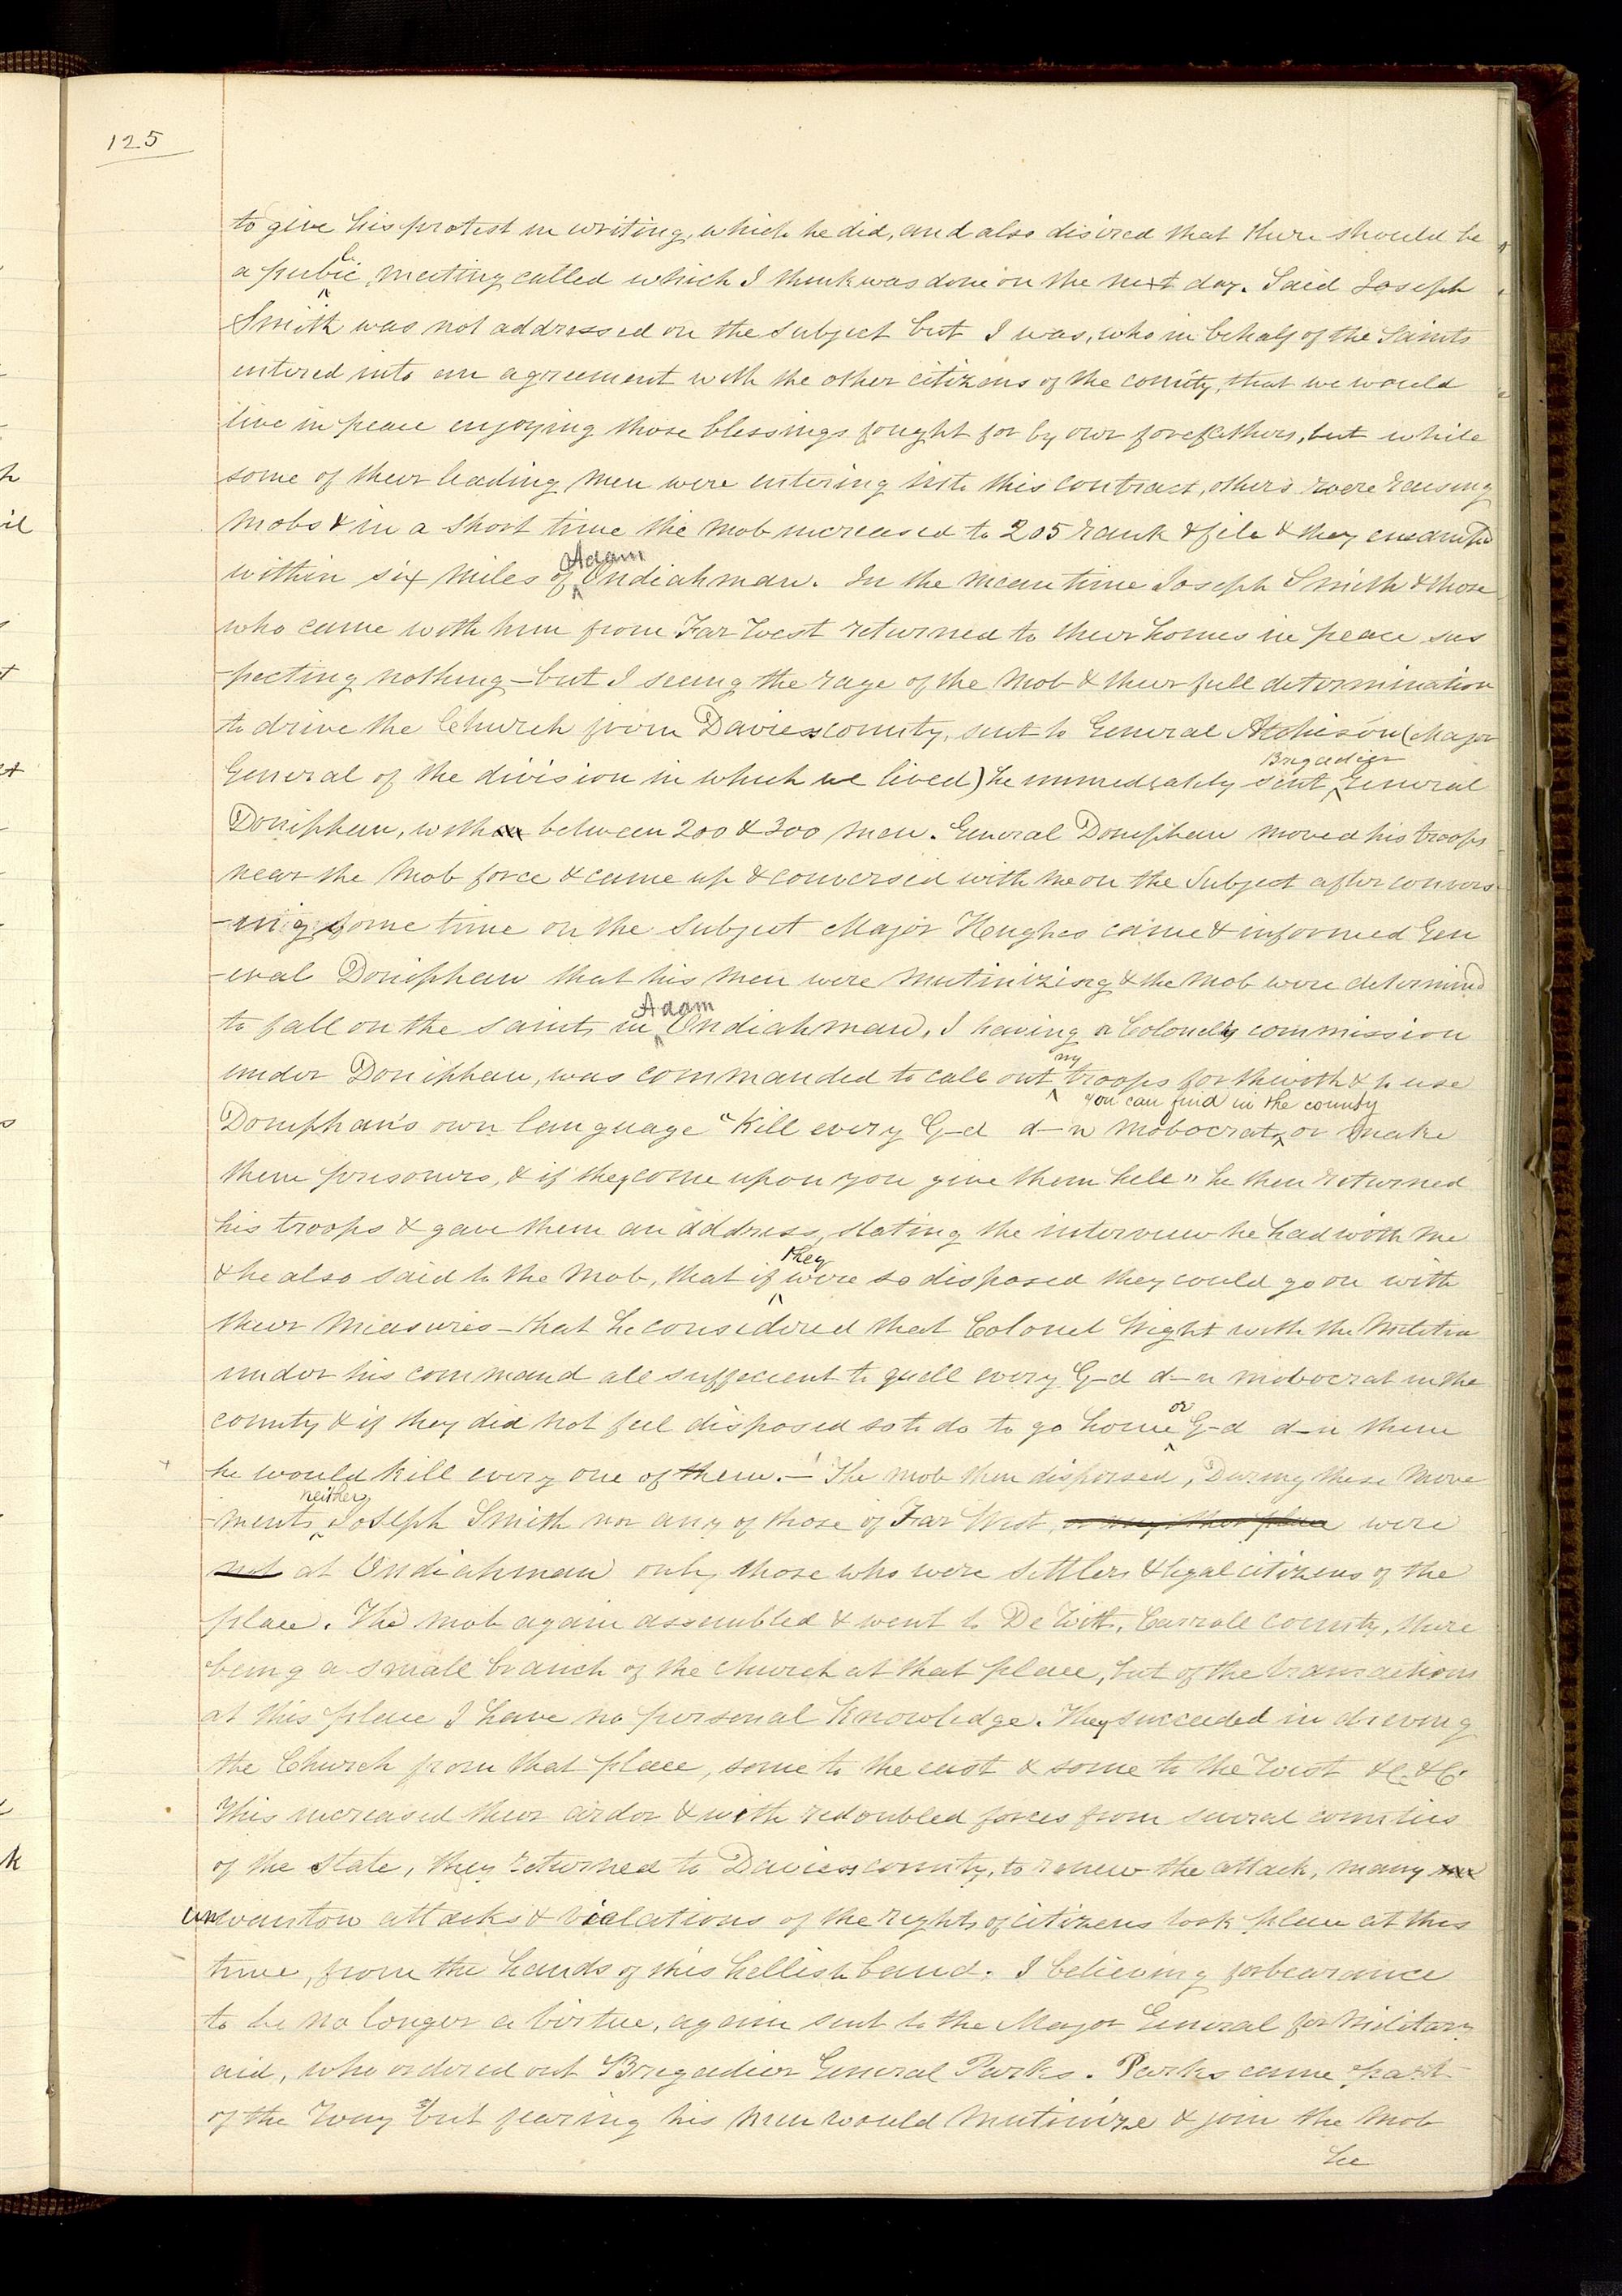 125
to give his protest in writing, which he did, and also disired that there should be
a public meeting called which I think was done on the next day. Said Joseph
Smith was not addressed on the subject but I was, who in behalf of the Saints
entered into an agreement with the other citizens of the county, that we would
live in peace enjoying those blessings fought for by our forefathers, but while
some of their leading men were entering into this contract, others were raising
mobs & in a short time the mob increased to 205 rank & file & they encamped
within six miles of Adam Ondiahman. In the mean time Joseph Smith & those
who came with him from Far West returned to their homes in peace sus
-pecting nothing - but I seeing the rage of the mob & their full determination
to drive the Church from Daviess county, sent to General Atchison (Major
General of the division in which we lived) he immediately sent Brigadier General
Doniphan, with between 200 & 300 men. General Doniphan moved his troops
near the mob force & came up & conversed with me on the subject after convers-
-ing some time on the subject Major Hughes came & informed Gen
-eral Doniphan that his men were mutinizing & the mob were determined
to fall on the saints in Adam Ondiahman. I having a Colonel's commission
under Doniphan, was commanded to call out my troops forthwith & to use
Doniphan's own language "Kill every G-d d-n mobocrat you can find in the county or make
them prisoners, & if they come upon you give them hell" he then returned
his troops & gave them an address, stating the interview he had with me
& he also said to the mob, that if they were so disposed they could go on with
their measures - that he considered that Colonel Wight with the Militia
under his command all suffecient to quell every G-d d-n mobocrat in the
county & if they did not feel disposed so to do to go home or G-d d-n them
he would kill every one of them. - The mob then dispersed, During these move
-ments neither Joseph Smith nor any of those of Far West or any other place were
not at Ondiahman only those who were settlers & legal citizens of the
place. The mob again assembled & went to De Witt, Carroll county, there
being a small branch of the church at that place, but of the transactions
at this place I have no personal knowledge. They succeeded in driving
the Church from that place, some to the east & some to the west &c. &c.
This increased their ardor & with redoubled forces from several counties
of the state, they returned to Daviess county, to renew the attack, many
unwanton attacks & violations of the rights of citizens took place at this
time, from the hands of this hellish band. I believing forbearance
to be no longer a virtue, again sent to the Major General for military
aid, who ordered out Brigadier General Parks. Parks came part
of the way but fearing his men would mutinize & join the mob
he